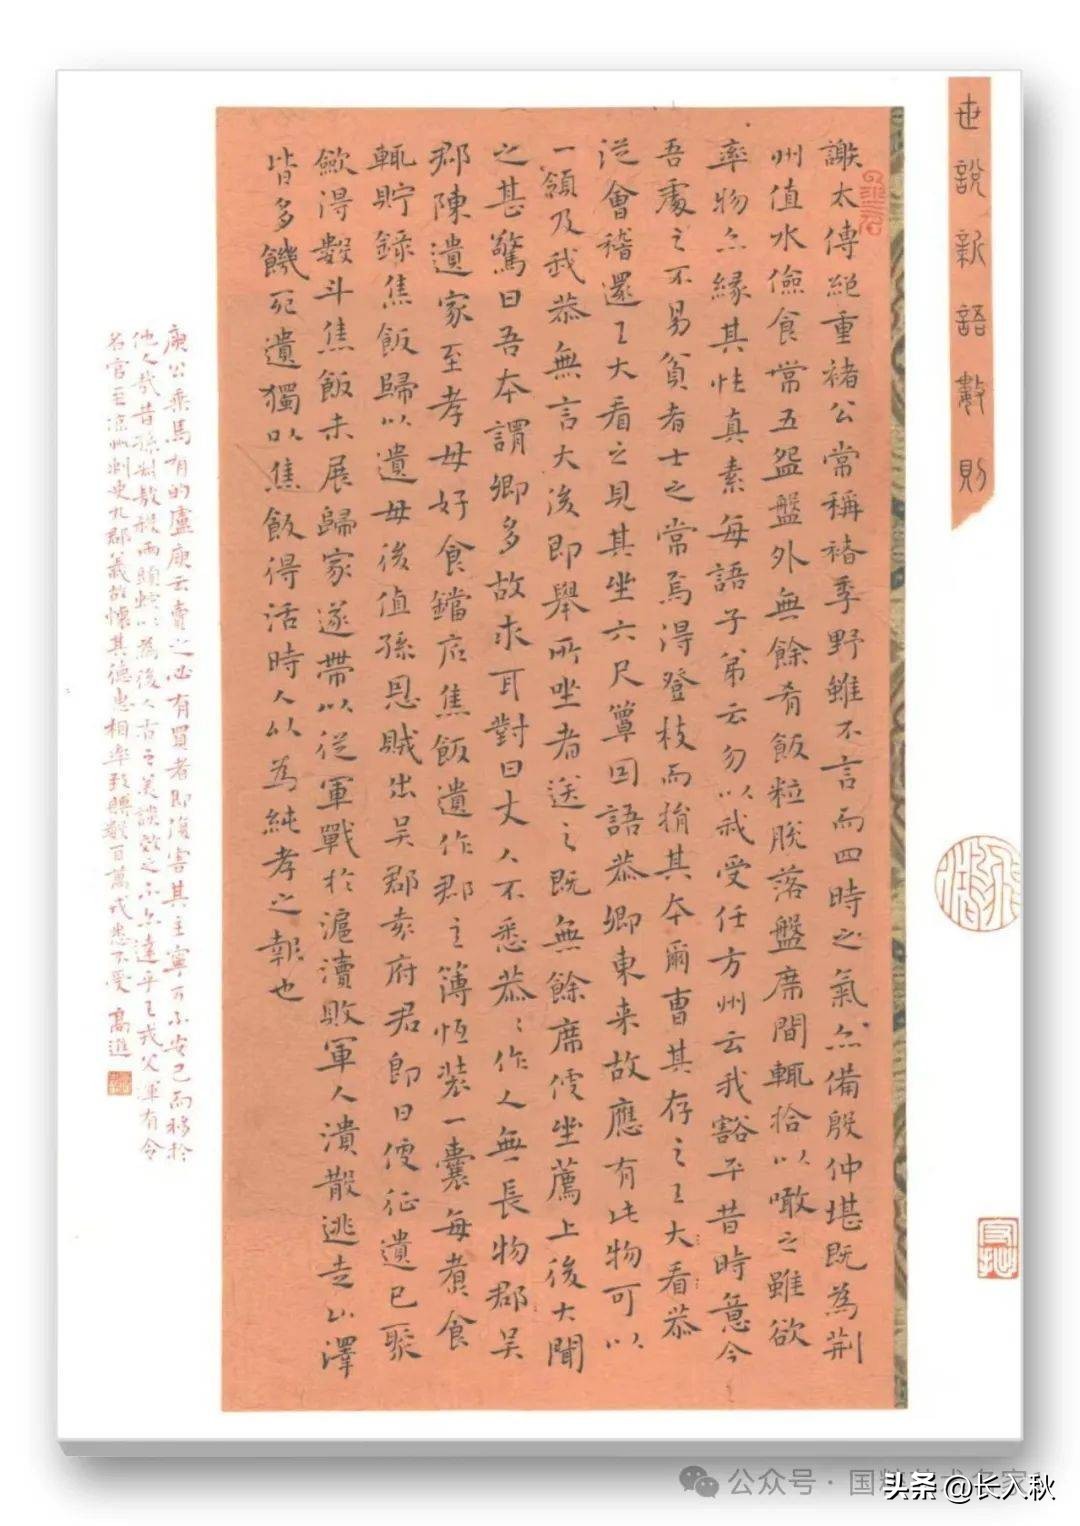 世說新語數則
謝太傅絕重褚公常稱褚季野雖不言而四時之氣亦備殷仲堪既為荊
州值水儉食常五盌盤外無餘肴飯粒脫落盤席間輒拾以噉之雖欲
率物亦緣其性真素每語子弟云勿以我受任方州云我豁平昔時意今
吾處之不易貧者士之常焉得登枝而捐其本爾曹其存之王大看恭
從會稽還王大看之見其坐六尺簟因語恭卿東来故應有此物可以
一領及我恭無言大後即舉所坐者送之既無餘席便坐薦上後大聞
之甚驚曰吾本謂卿多故求耳對曰丈人不悉恭〻作人無長物郡吴
郡陳遺家至孝母好食鐺底焦飯遺作郡主簿恆裝一囊每煮食
輒貯錄焦飯歸以遺母後值孫恩賊出吴郡袁府君即日便征遺已聚
歛得數斗焦飯未展歸家遂帶以從軍戰於滬瀆敗軍人潰散逃走山澤
皆多饑死遺獨以焦飯得活時人以為純孝之報也
庾公乘馬有的盧庾云賣之必有買者即復害其主寧可不安己而移於
他人哉昔孫叔敖殺兩頭蛇以為後人古之美談效之不亦達乎王戎父渾有令
名官至涼州刺史九郡義故懷其德惠相率致賻數百萬戎悉不受 高進
公众号·国粹艺术名家
头条@长入秋